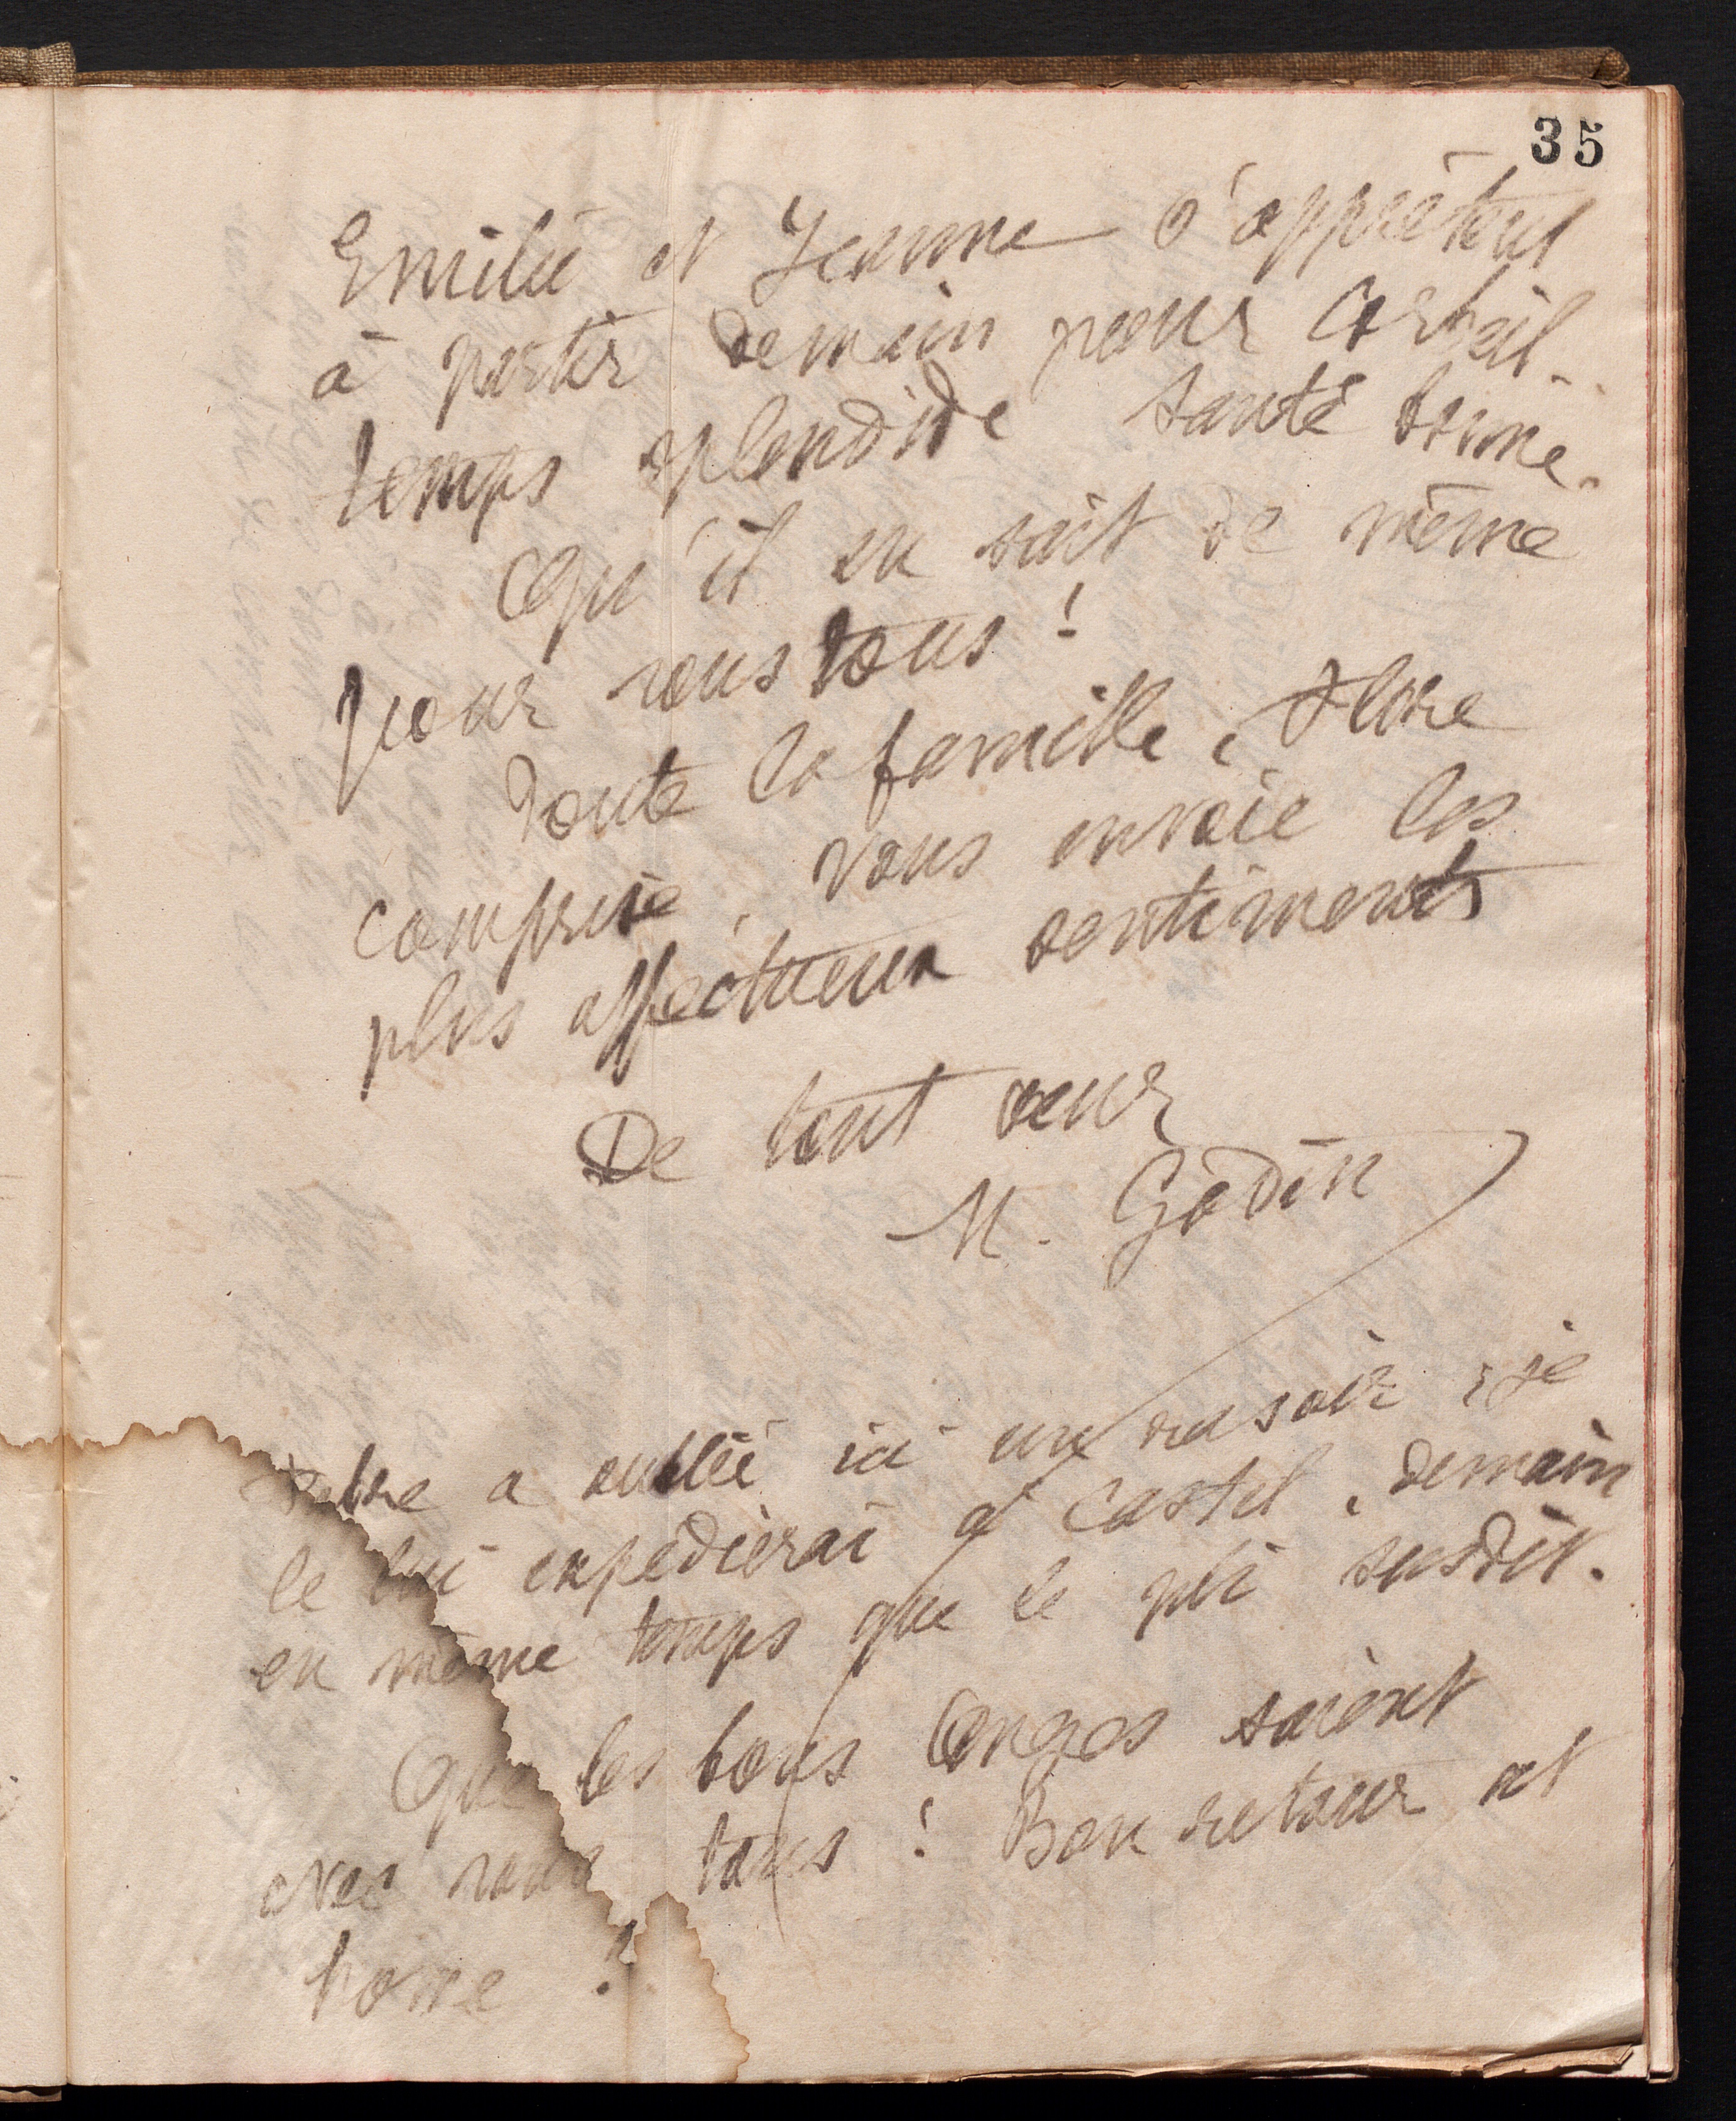 35
Emilie et Jeanne s'apprêtent
à partir demain pour Corbeil.
temps splendide santé bonne.
Qu'il en soit de même
pour vous tous !
Toute la famille, Flore
comprise, vous envoie les
plus affectueux sentiments
De tout cœur
M. Godin
a oublié ici un rasoir, je
le lui expédierai à Castel, demain
en même temps que le pli susdit.
Que les bons Anges soient
avec vous tous ! Bon retour et
bonne !